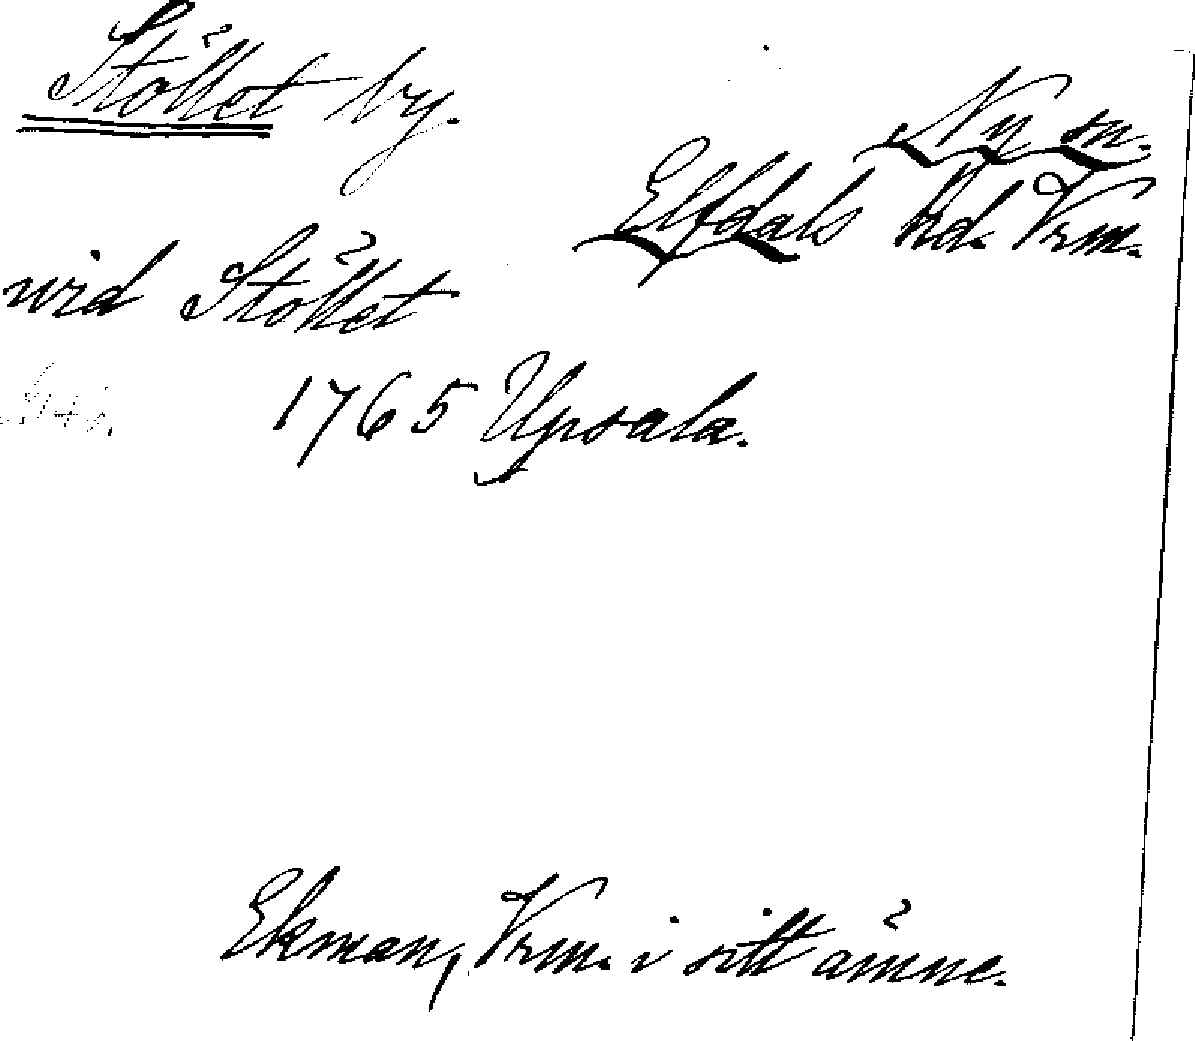 Stöllet by.
Ny sn.
Elfdals hd. Vrm.
wid Stöllet
1765 Upsala.
Ekman, Vrm. i sitt ämne.